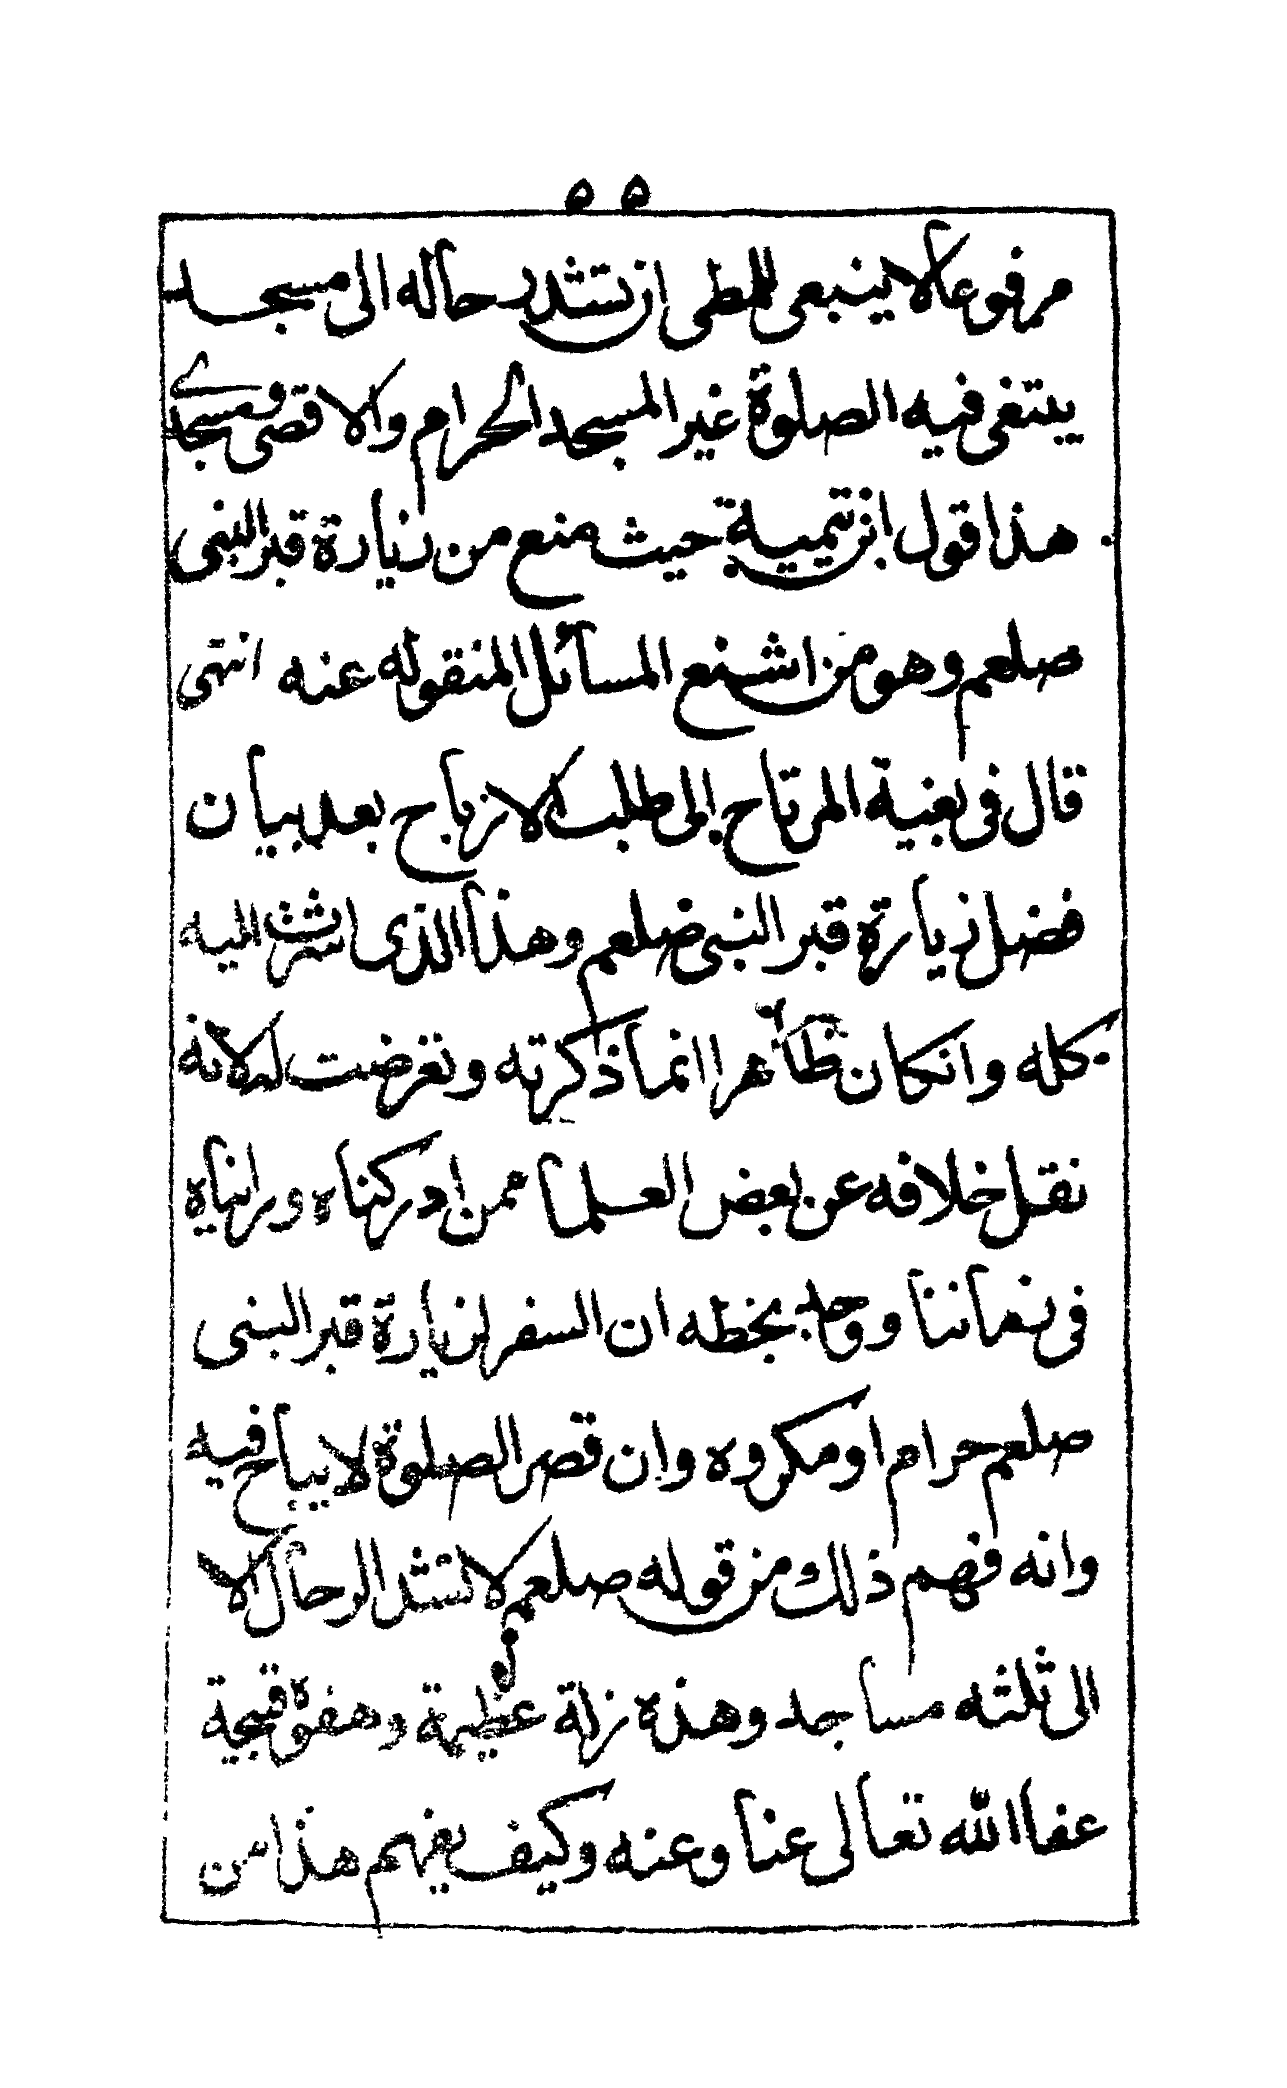 ٥٥
مرفوعا لا ينبغى للمطى ان تشد رحاله الى مسجد
يبتغى فيه الصلوة غير المسجد الحرام والاقصى ومسجدى
هذا قول ابن تيمية حيث منع من زيارة قبر النبى
صلعم وهو من اشنع المسائل المنقوله عنه انتهى
قال فى بغية المرتاح الى طلب الارباح بعد بيان
فضل زيارة قبر النبى صلعم وهذا الذى اشرت اليه
كله وانكان ظاهرا انما ذكرته وتعرضت له لانه
نقل خلافه عن بعض العلما ممن ادركناه وراٮناه
فى زماننا ووجد بخطه ان السفر لزيارة قبر النبى
صلعم حرام او مكروه وان قصر الصلوة لا يباح فيه
وانه فهم ذلك من قوله صلعم لا تشد الرحال الا
الى ثلثه مساجد وهذه زلة عظيمة وهفوة قبيحة
عفا الله تعالى عنا وعنه وكيف يفهم هذا من